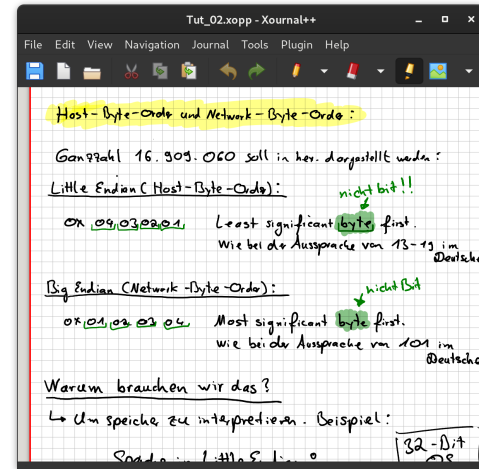 Tut_02.xopp - Xournal++
File Edit View Navigation Journal Tools Plugin Help
Host-Byte-Order und Network-Byte-Order:
Ganzzahl 16.909.060 soll in hex. dargestellt werden:
Little Endian (Host-Byte-Order):
nicht bit!!
0x 04 03 02 01 Least significant byte first.
Wie bei der Aussprache von 13-19 im
Deutsche
Big Endian (Network-Byte-Order):
nicht Bit
0x 01 02 03 04 Most significant byte first.
Wie bei der Aussprache von 101 im
Deutsche
Warum brauchen wir das?
↳ Um speicher zu interpretieren. Beispiel:
32-Bit